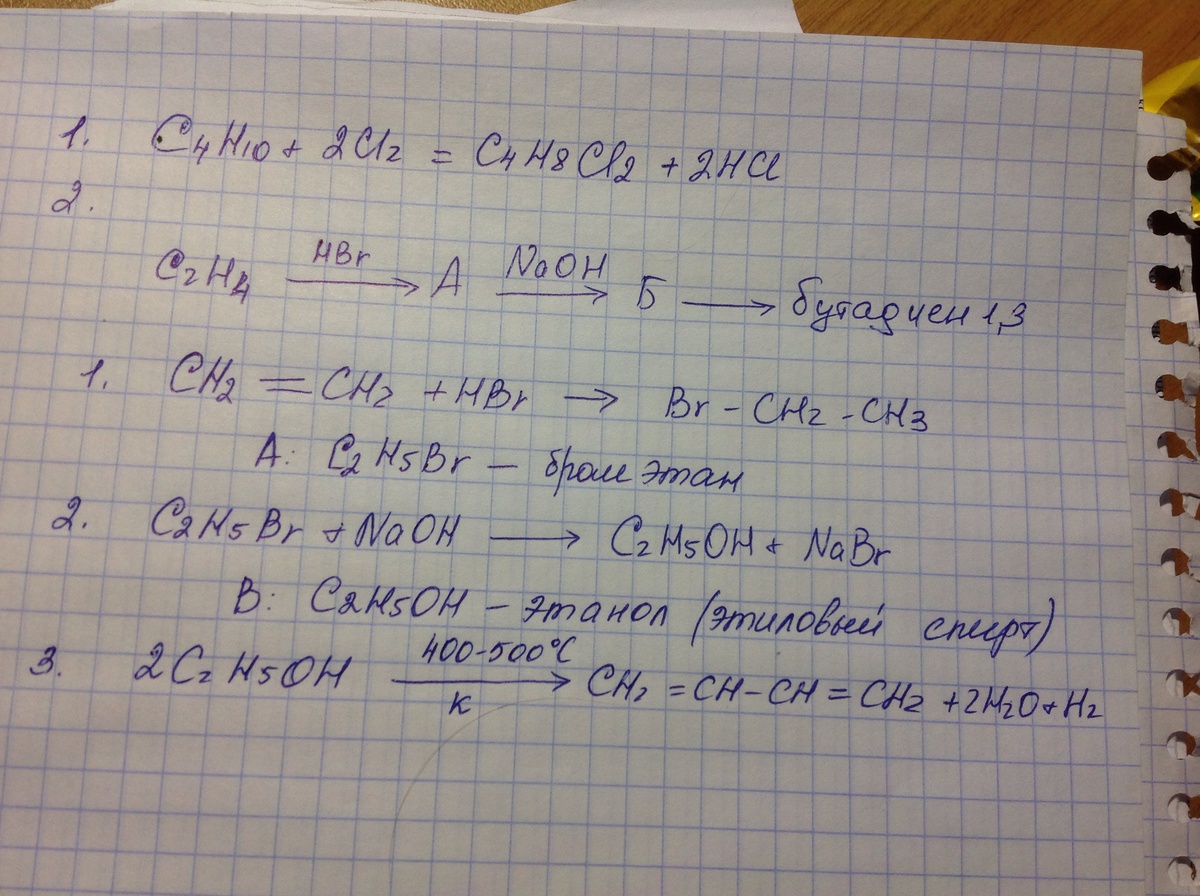 1. C4H10 + 2Cl2 = C4H8Cl2 + 2HCl
2.
C2H4 HBr → А NaOH → Б → бутадиен 1,3
1. CH2 = CH2 + HBr → Br - CH2 - CH3
А: C2H5Br - бром этан
2. C2H5Br + NaOH → C2H5OH + NaBr
В: C2H5OH - этанол (этиловый спирт)
3. 2C2H5OH 400-500°C → к CH2 = CH-CH = CH2 + 2H2O + H2